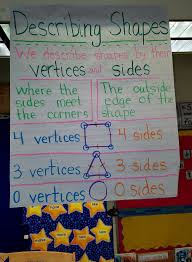 Describing Shapes
We describe shapes by their
vertices and sides
Where the sides meet the corners
The outside edge of the shape
4 vertices 4 sides
3 vertices 3 sides
0 vertices 0 sides